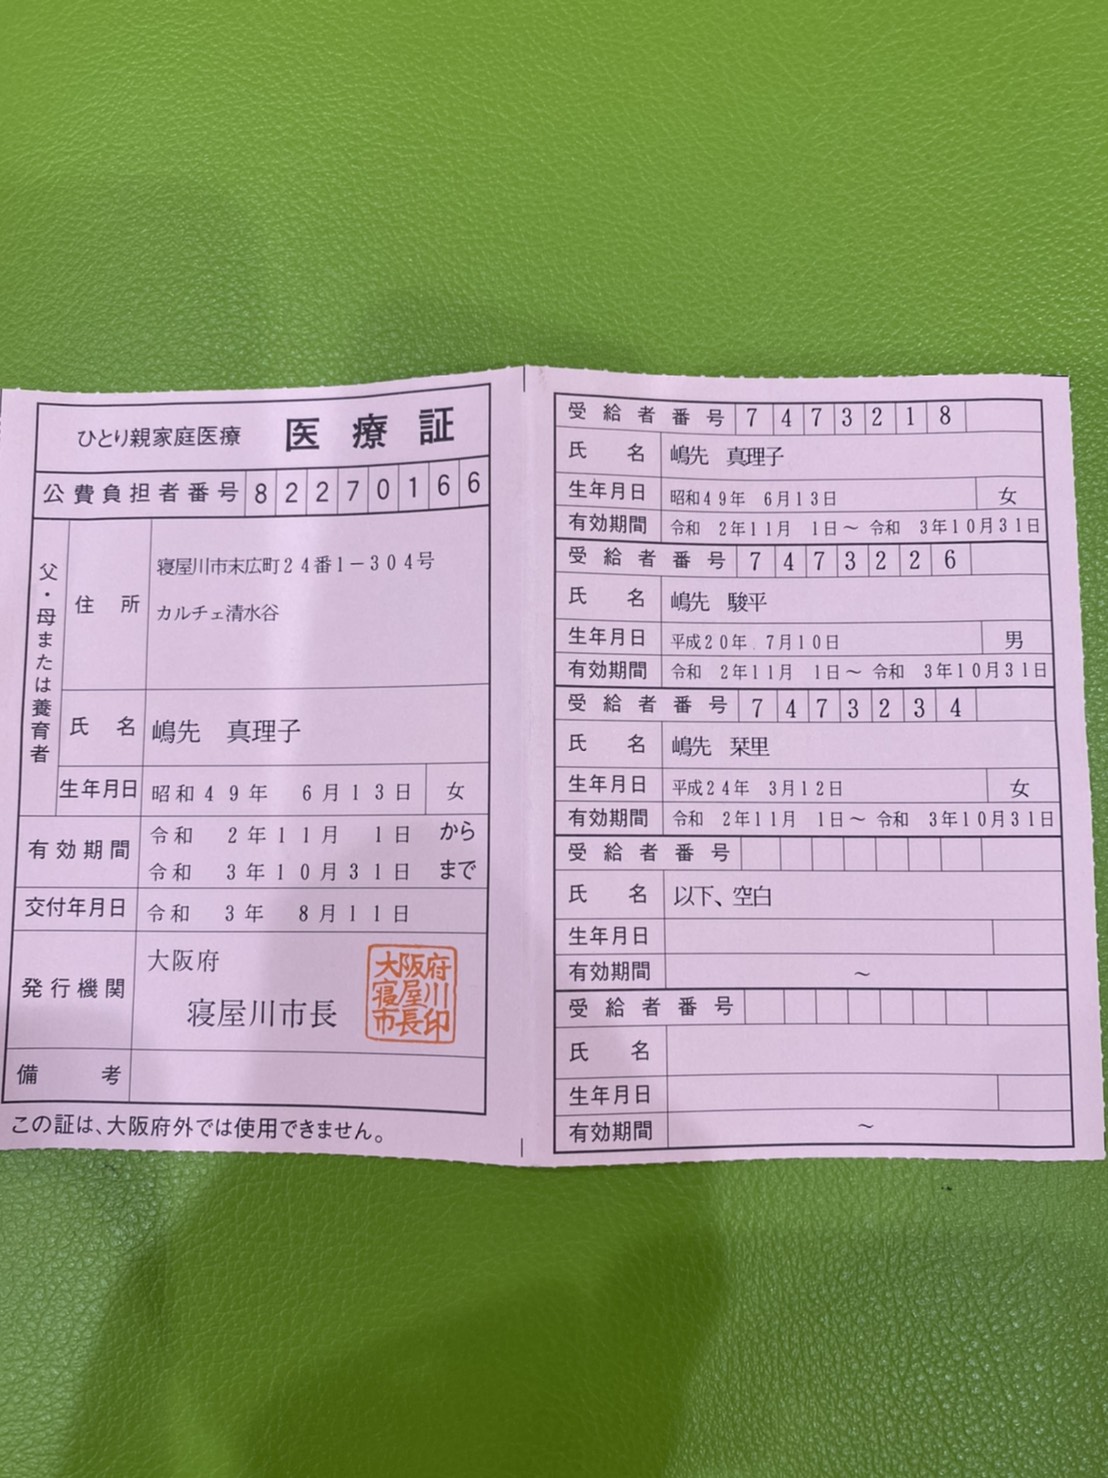 ひとり親家庭医療 医療証
公費負担者番号 82270166
父・母または養育者
住所 寝屋川市末広町24番1-304号
カルチェ清水谷
氏名 嶋先 真理子
生年月日 昭和49年 6月13日 女
有効期間 令和 2年11月 1日 から
令和 3年10月31日 まで
交付年月日 令和 3年 8月11日
発行機関 大阪府
寝屋川市長
大阪府
寝屋川
市長印
備考
この証は、大阪府外では使用できません。
受給者番号 7473218
氏名 嶋先 真理子
生年月日 昭和49年 6月13日 女
有効期間 令和 2年11月 1日～ 令和 3年10月31日
受給者番号 7473226
氏名 嶋先 駿平
生年月日 平成20年 7月10日 男
有効期間 令和 2年11月 1日～ 令和 3年10月31日
受給者番号 7473234
氏名 嶋先 栞里
生年月日 平成24年 3月12日 女
有効期間 令和 2年11月 1日～ 令和 3年10月31日
受給者番号
氏名 以下、空白
生年月日
有効期間 ～
受給者番号
氏名
生年月日
有効期間 ～